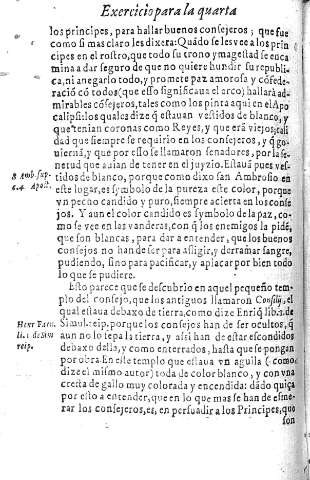 Exercicio para la quarta
los principes, para hallar buenos consejeros; que fue
como si mas claro les dixera: Quādo se les vee a los prin
cipes en el rostro, que todo su trono y magestad se enca
mina a dar seguro de que no quiere hundir su republi
ca, ni anegarlo todo, y promete paz amorosa y cōfede-
ració có todos (que esso significaua el arco) hallará ad-
mirables cósejeros, tales como los pinta aqui en el Apo
calipsi: los quales dize q̄ estauan vestidos de blanco, y
que tenian coronas como Reyes, y que erá viejos; cali
dad que siempre se requirio en los consejeros, y q̄ go-
uierná, y que por esso se llamaron senadores, por la se-
netud que auian de tener en el juyzio. Estauā pues ves-
tidos de blanco, porque como dixo san Ambrosio en
este lugar, es symbolo de la pureza este color, porque
vn pecho candido y puro, siempre acierta en los conse
jos. Y aun el color candido es symbolo de la paz, co-
mo se vee en las vanderas, con q̄ los enemigos la pidē,
que son blancas, para dar a entender, que los buenos
consejos no han de ser para afligir, y derramar sangre,
pudiendo, sino para pacificar, y aplacar por bien todo
lo que se pudiere.
S Amb. sup.
c. 4. Apoc.
Esto parece que se descubrio en aquel pequeño tem
plo del consejo, que los antiguos llamaron Consilij, el
qual estaua debaxo de tierra, como dize Enriq̄ lib. 1. de
Simul. reip. porque los consejos han de ser ocultos, q̄
aun no lo sepa la tierra, y assi han de estar escondidos
debaxo della, y como enterrados, hasta que se pongan
por obra. En este templo estaua vn aguila (como
dize el mismo autor) toda de color blanco, y con vna
cresta de gallo muy colorada y encendida: dādo quiça
por esto a entender, que en lo que mas se han de esme-
rar los consejeros, es, en persuadir a los Principes, que
Henr Farn.
li. 1. de Sim
reip.
son